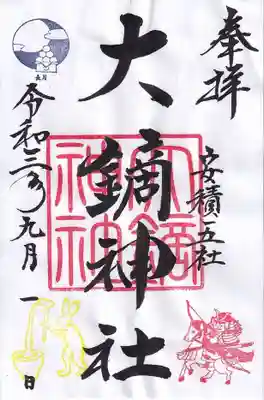 奉拝
安積五社
大鏑神社
大鏑
神社
長月
令和三年九月一日